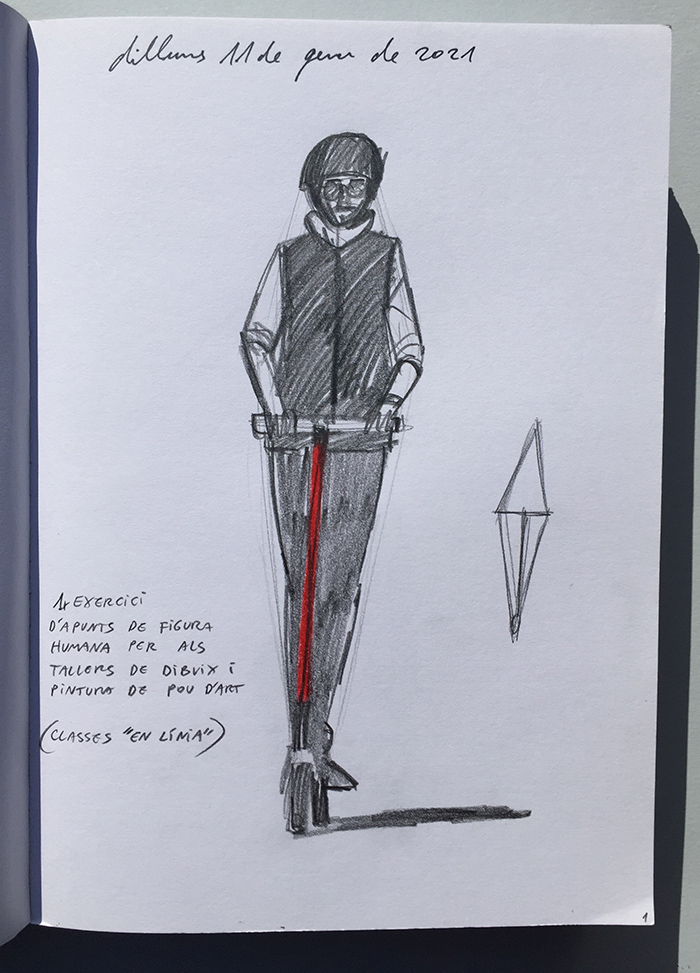 dilluns 11 de gener de 2021
1r EXERCICI
D'APUNTS DE FIGURA
HUMANA PER ALS
TALLERS DE DIBUIX I
PINTURA DE POU D'ART
(CLASSES "EN LÍNIA")
1